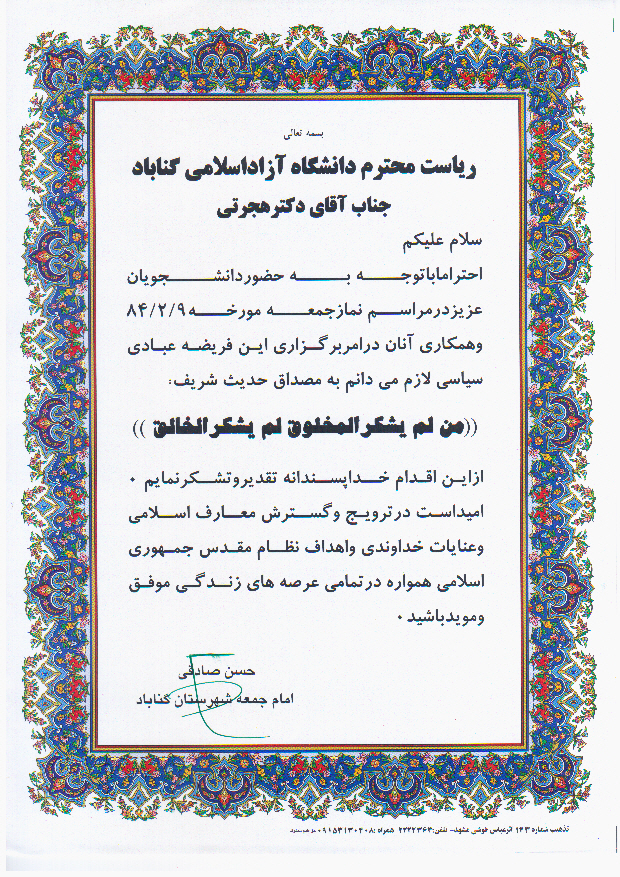 بسمه تعالی
ریاست محترم دانشگاه آزاداسلامی گناباد
جناب آقای دکترهجرتی
سلام علیکم
احتراماباتوجه به حضوردانشجویان
عزیزدرمراسم نمازجمعه مورخه ۸۴/۲/۹
وهمکاری آنان درامربرگزاری این فریضه عبادی
سیاسی لازم می دانم به مصداق حدیث شریف:
((من لم یشکرالمخلوق لم یشکرالخالق ))
ازاین اقدام خداپسندانه تقدیروتشکرنمایم ۰
امیداست درترویج وگسترش معارف اسلامی
وعنایات خداوندی واهداف نظام مقدس جمهوری
اسلامی همواره درتمامی عرصه های زندگی موفق
ومویدباشید ۰
حسن صادقی
امام جمعه شهرستان گناباد
تذهیب شماره ۱۴۳ اثرعباس خوشی مشهد- تلفن:۲۲۲۲۳۶۴ همراه :۰۹۱۵۳۱۳۰۲۰۸